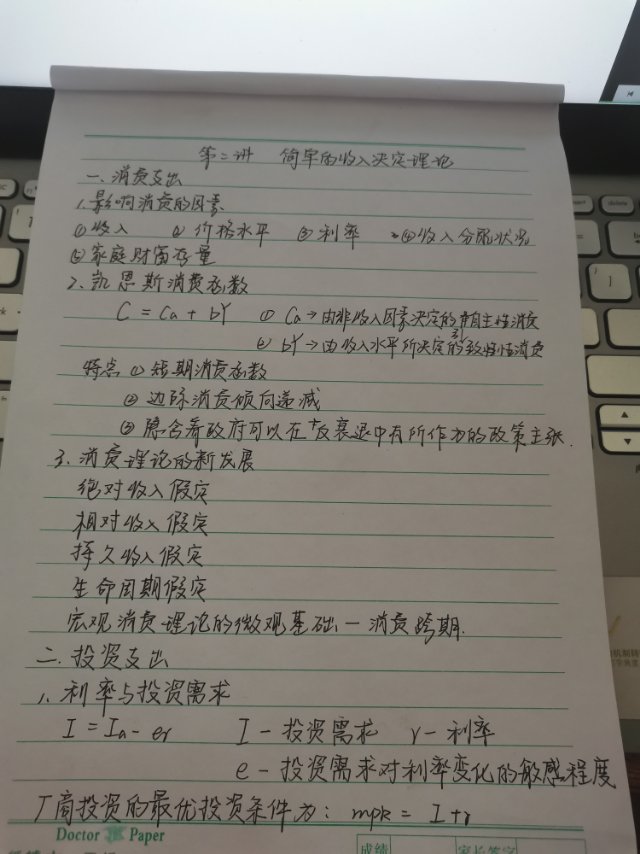 第二讲 简单的收入决定理论
一、消费支出
1.影响消费的因素
①收入 ②价格水平 ③利率 ④收入分配状况
⑤家庭财富存量
2.凯恩斯消费函数
C = Ca + bY ① Ca→由非收入因素决定的自主性消费
② bY→由收入水平所决定的引致性消费
特点①短期消费函数
②边际消费倾向递减
③隐含着政府可以在反衰退中有所作为的政策主张.
3.消费理论的新发展
绝对收入假定
相对收入假定
持久收入假定
生命周期假定
宏观消费理论的微观基础—消费跨期.
二.投资支出
1.利率与投资需求
I = Ia - er I - 投资需求 r - 利率
e - 投资需求对利率变化的敏感程度
厂商投资的最优投资条件为: mpk = I+r
Doctor Paper
成绩 家长签字